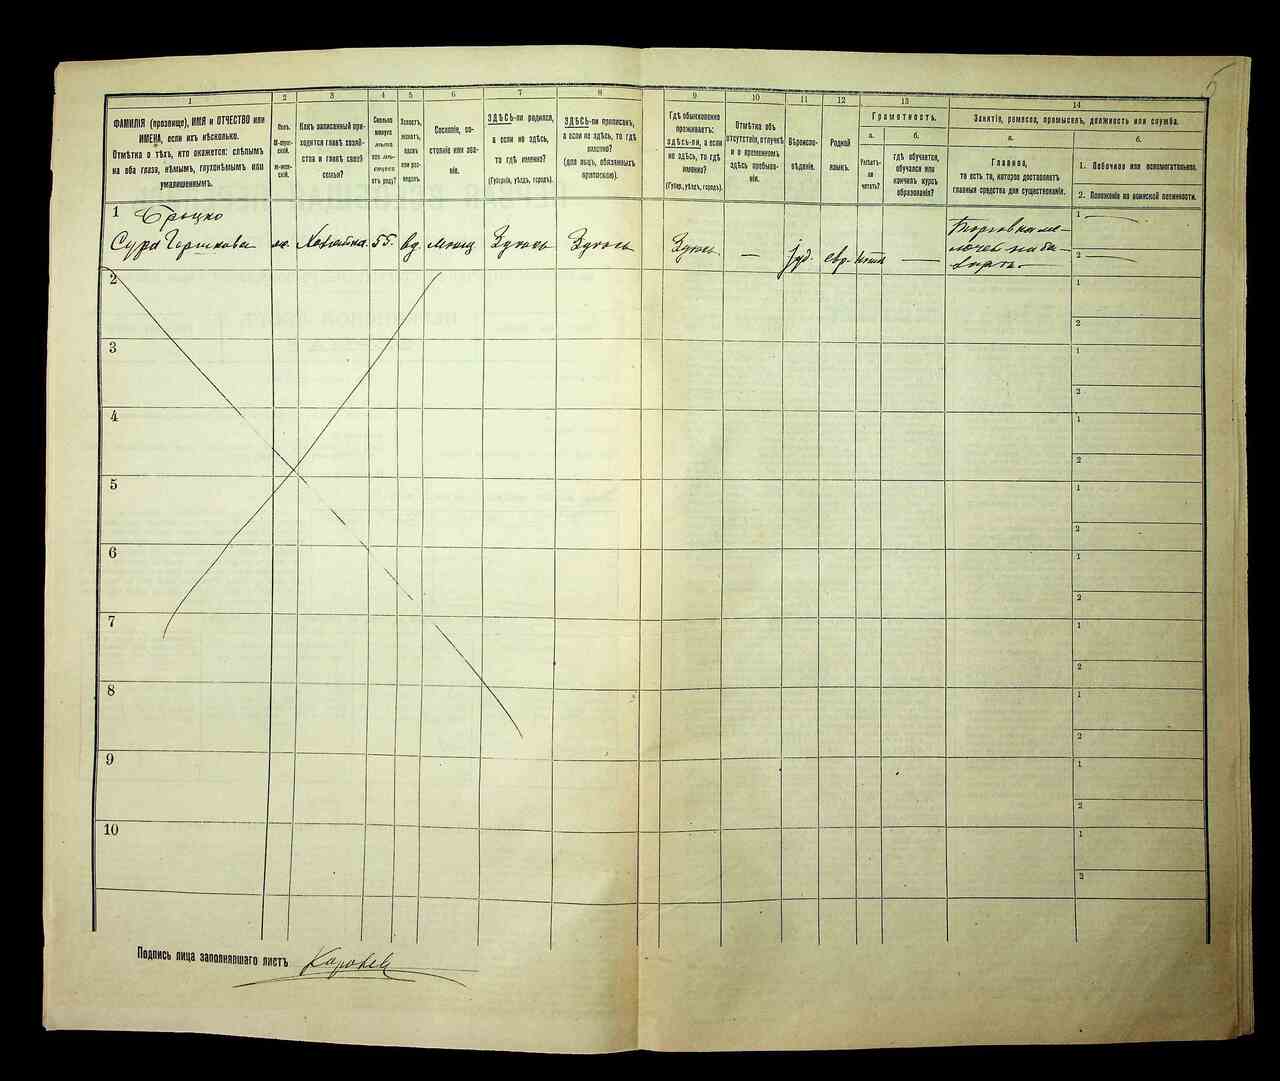 5
1
ФАМИЛІЯ (прозвище), ИМЯ и ОТЧЕСТВО или
ИМЕНА, если ихъ нѣсколько.
Отмѣтка о тѣхъ, кто окажется: слѣпымъ
на оба глаза, нѣмымъ, глухонѣмымъ или
умалишеннымъ.
2
Полъ.
М-мужской.
Ж-женскій.
3
Какъ записанный при-
ходится главѣ хозяй-
ства и главѣ своей
семьи?
4
Сколько
минуло
лѣтъ
отъ роду?
5
Холостъ,
женатъ,
вдовъ
или раз-
веденъ.
6
Сословіе, со-
стояніе или зва-
ніе.
7
ЗДѢСЬ-ли родился,
а если не здѣсь,
то гдѣ именно?
(Губернія, уѣздъ, городъ).
8
ЗДѢСЬ-ли приписанъ,
а если не здѣсь, то гдѣ
именно?
(для лицъ, обязанныхъ
припискою).
9
Гдѣ обыкновенно
проживаетъ:
здѣсь-ли, а если
не здѣсь, то гдѣ
именно?
(Губер., уѣздъ, городъ).
10
Отмѣтка объ
отсутствіи, отлучкѣ
и о временномъ
здѣсь пребыва-
ніи.
11
Вѣроиспо-
вѣданіе.
12
Родной
языкъ.
13
Грамотность.
а.
Умѣетъ-
ли
читать?
б.
гдѣ обучается,
обучался или
кончилъ курсъ
образованія?
14
Занятіе, ремесло, промыселъ, должность или служба.
а.
Главное,
то есть то, которое доставляетъ
главныя средства для существованія.
б.
1. Побочное или вспомогательное.
2. Положеніе по воинской повинности.
1
Сура ж. Хозяйка 55. вд. мѣщ Здѣсь Здѣсь Здѣсь — іуд. евр. —
1
2
2
1
2
3
1
2
4
1
2
5
1
2
6
1
2
7
1
2
8
1
2
9
1
2
10
1
2
Подпись лица заполнявшаго листъ